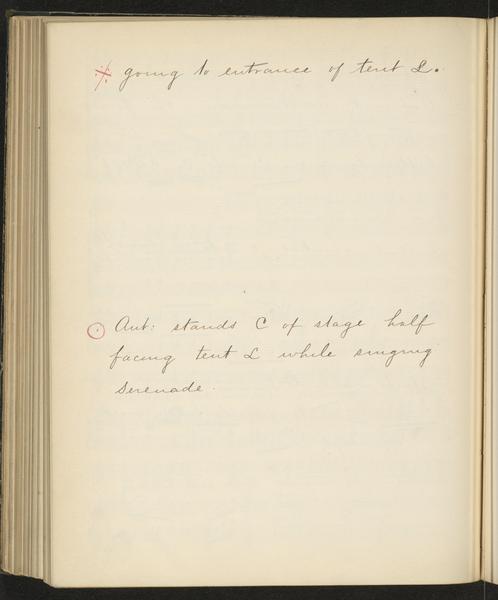 going to entrance of tent L.
Ant: stands C of stage half
facing tent L while singing
Serenade.